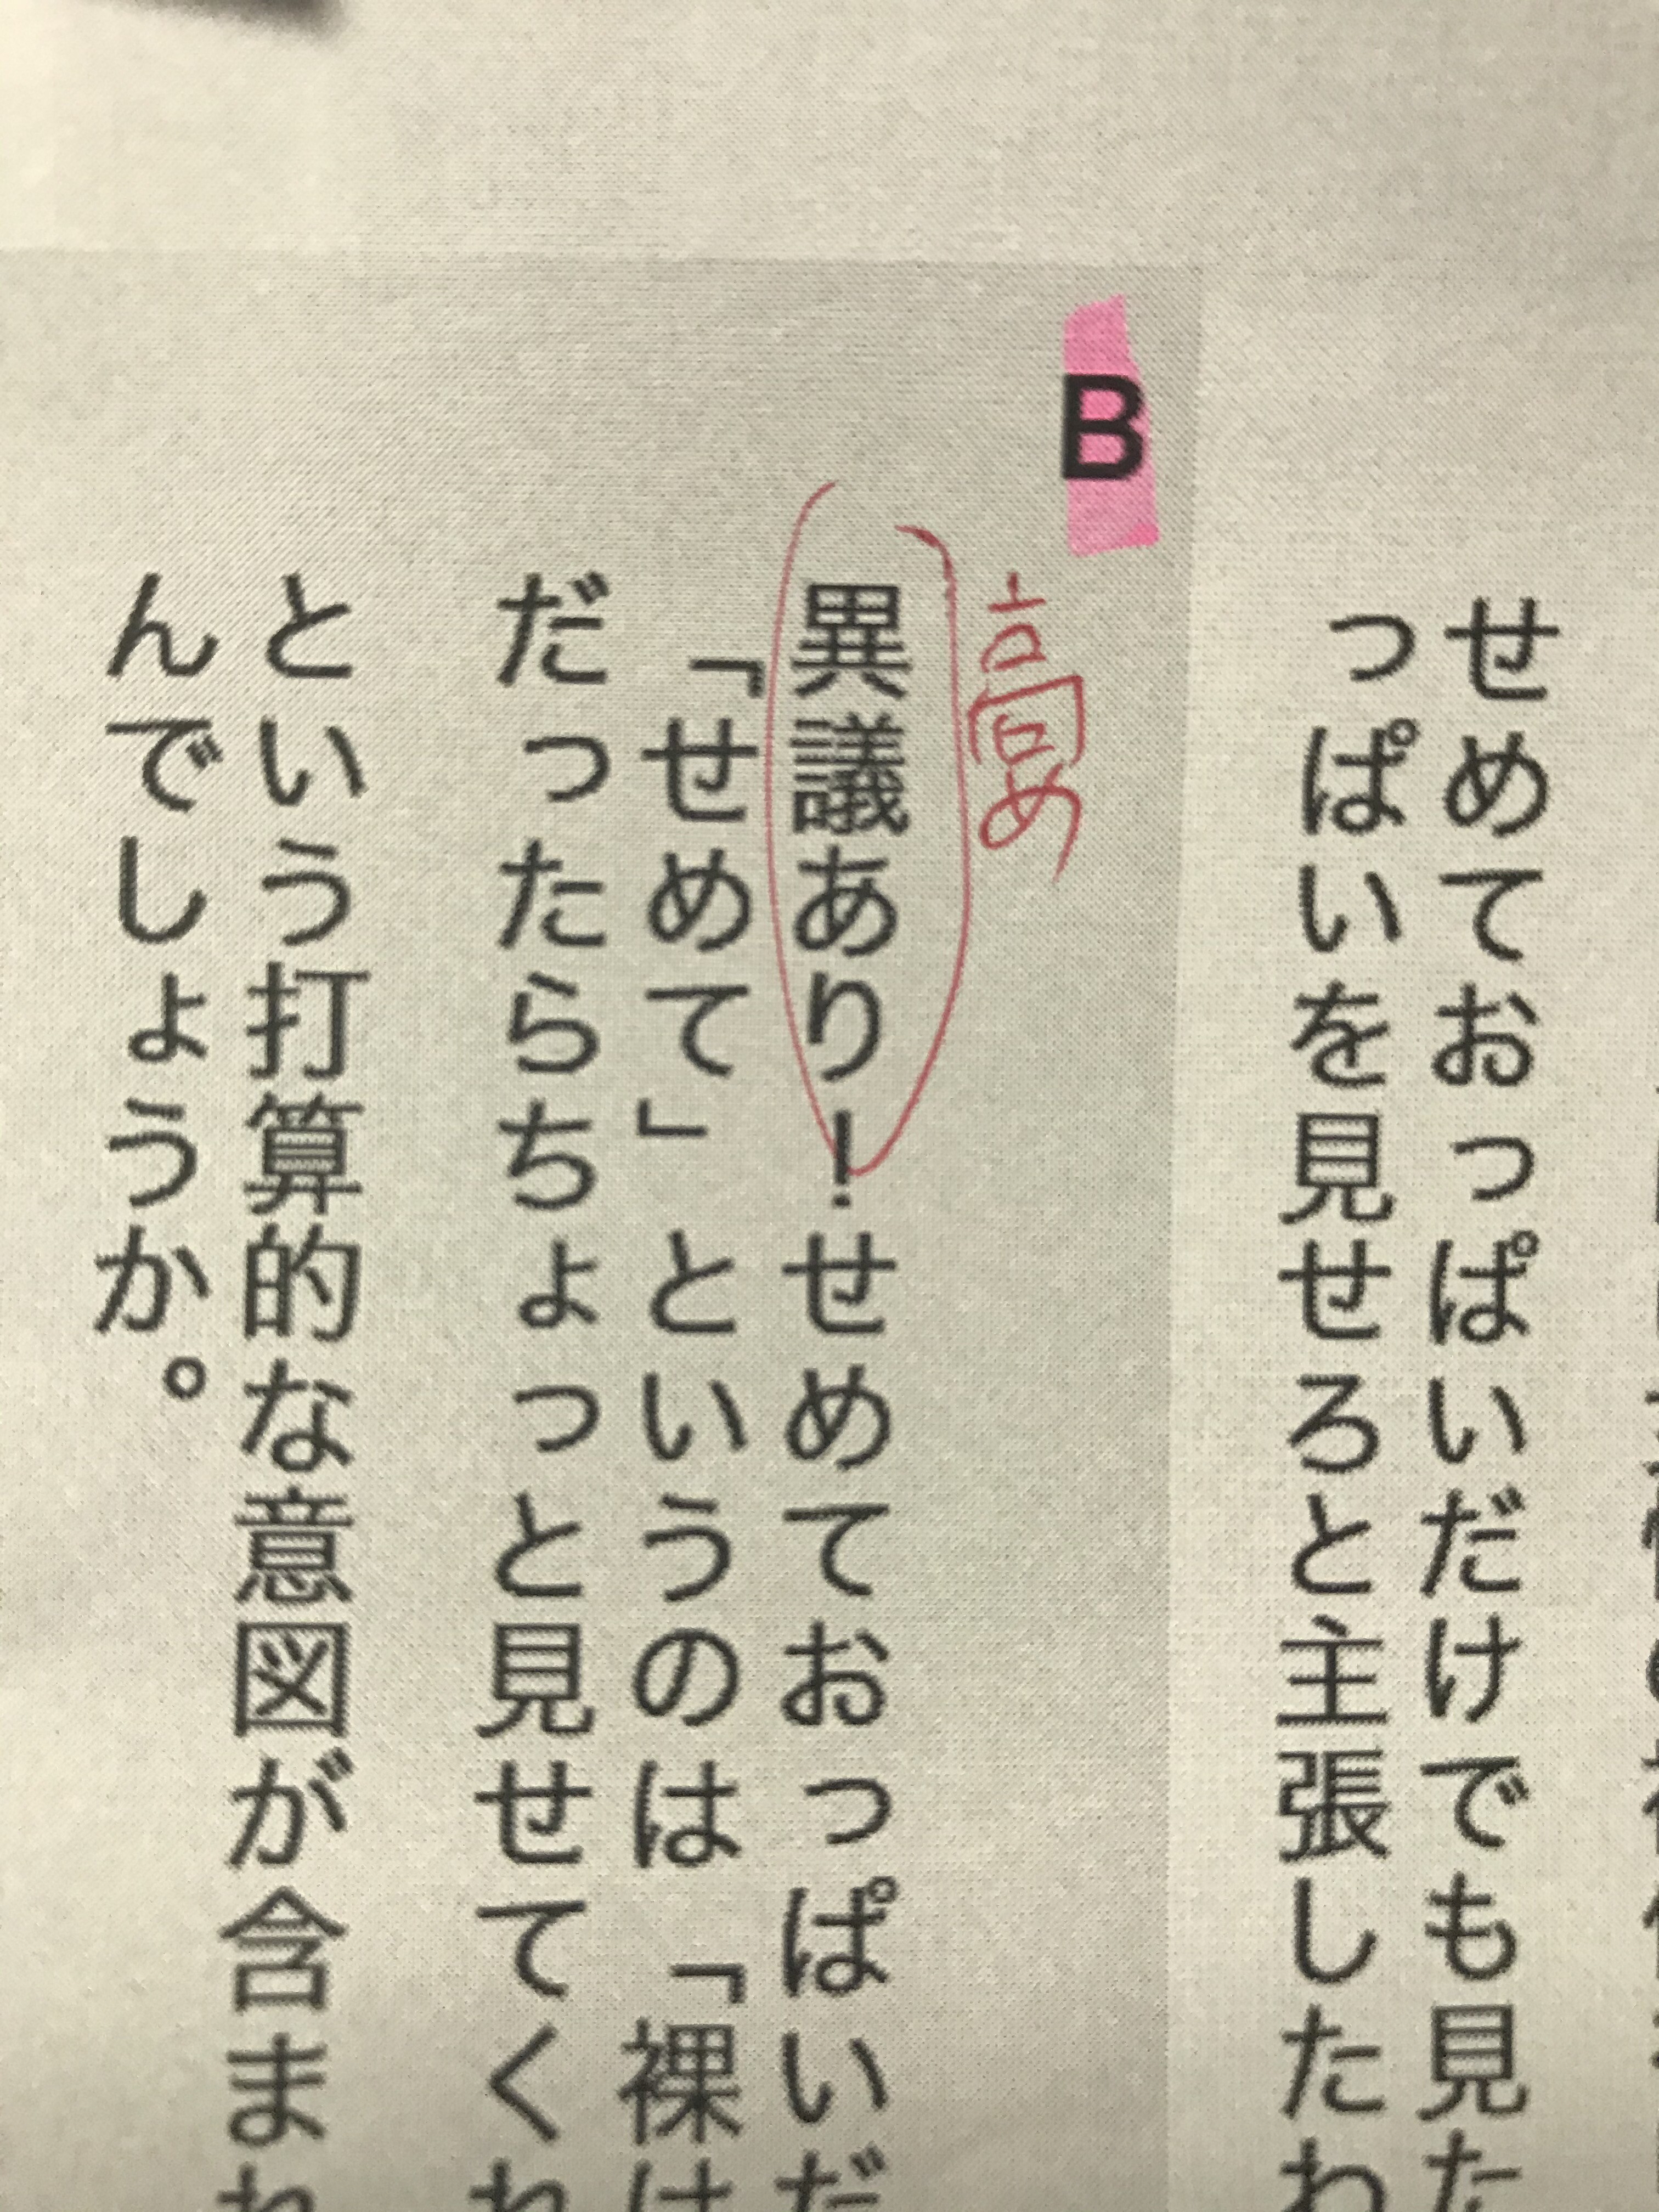 せめておっぱいだけでも見た
っぱいを見せろと主張したわ
B
高め
異議あり!せめておっぱいだ
「せめて」というのは「裸は
だったらちょっと見せてくれ
という打算的な意図が含まれ
んでしょうか。